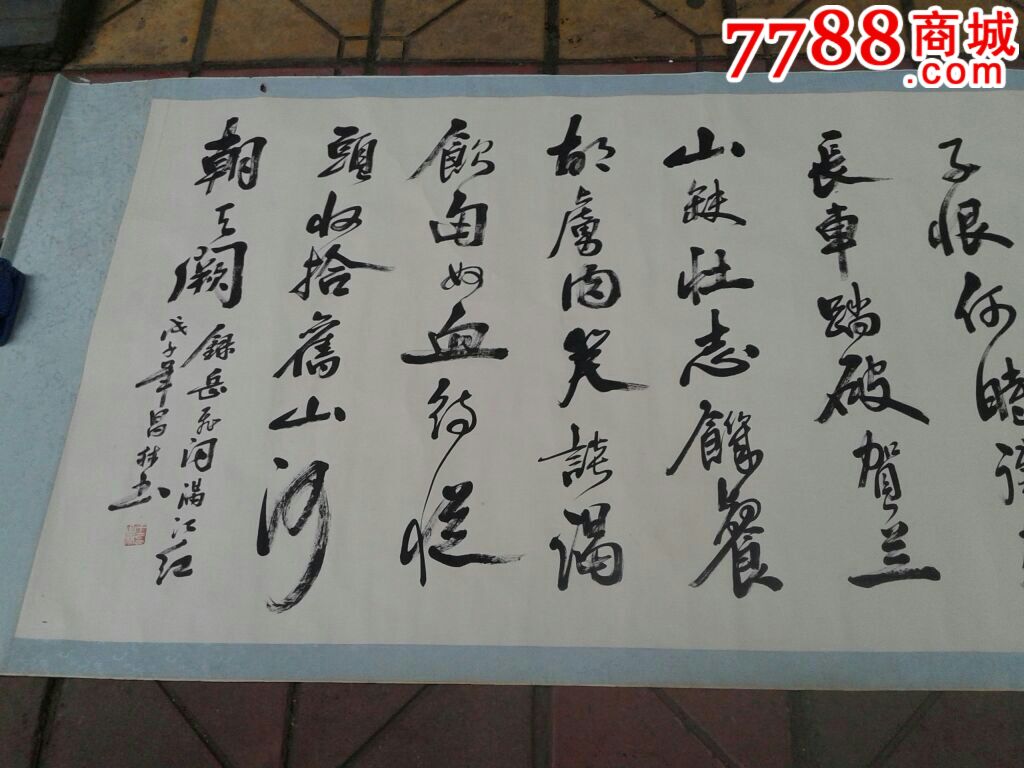 7788商城
.com
子恨何時
長車踏破賀兰
山缺壮志饑餐
胡虜肉笑談渴
飲匈奴血待從
頭收拾舊山河
朝天闕
録岳飛词满江红
戊子年昌林书